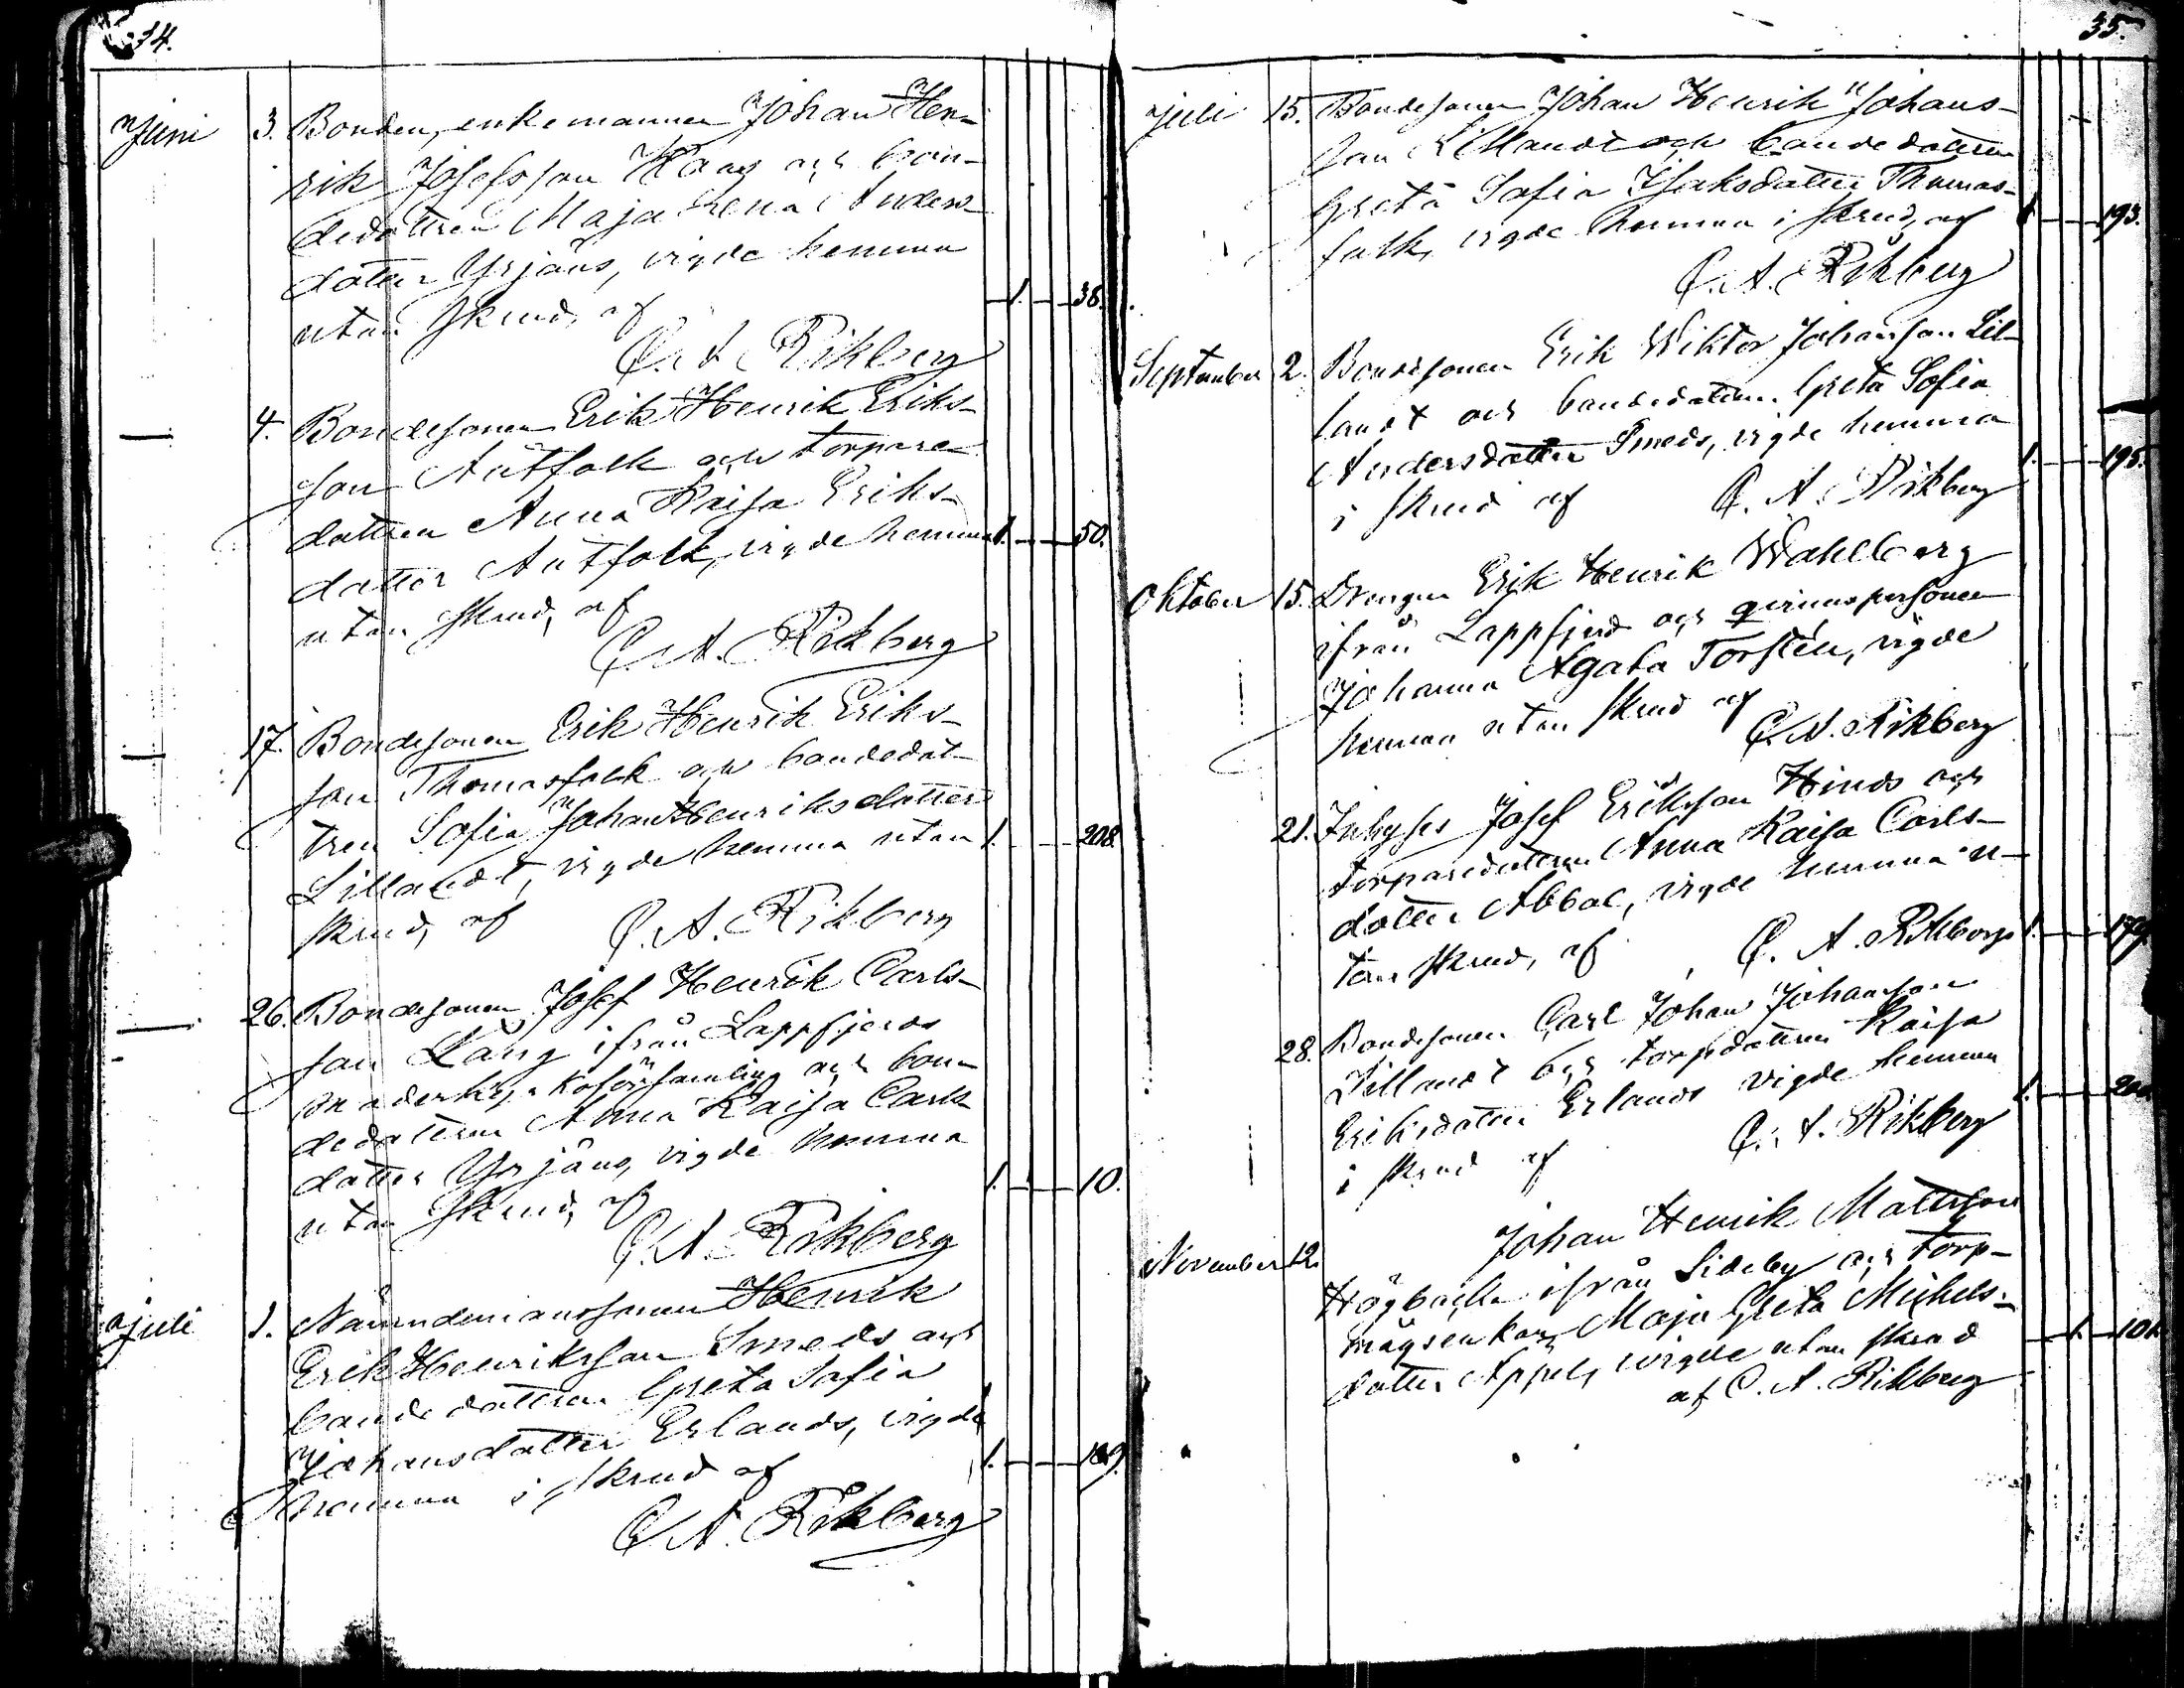 34.
Juni 3. Bonden, enkemannen Johan Hen-
rik Josefsson Haag och bon-
dedottren Maja Lena Anders-
dotter Yrjäns, vigde hemma
utan skrud, af 1. 38.
C. A. Rikberg
4. Bondesonen Erik Henrik Eriks-
son Antfolk och torpare-
dottren Anna Kaisa Eriks-
dotter Antfolk, vigde hemma 1. 50.
utan skrud, af
C. A. Rikberg
17. Bondesonen Erik Henrik Eriks-
son Thomasfolk och bondedot-
tren Sofia Johan Henriksdotter
Lillandt, vigde hemma utan 1. 208.
skrud, af C. A. Rikberg
26. Bondesonen Josef Henrik Carls-
son Lång ifrån Lappfjerds
moderkyrkoförsamling och bon-
dedottren Anna Kaisa Carls-
dotter Yrjäns, vigde hemma
utan skrud, af 1. 10.
C. A. Rikberg
Juli 1. Nämndemanssonen Henrik
Erik Henriksson Smeds och
bondedottren Greta Sofia
Johansdotter Erlands, vigde
hemma i skrud af 1.
C. A. Rikberg
35.
Juli 15. Bondesonen Johan Henrik Johans-
son Lillandt och bondedottren
Greta Sofia Isaksdotter Thomas-
folk, vigde hemma i skrud, af 1. 193.
C. A. Rikberg
September 2. Bondesonen Erik Wiktor Johansson Lil-
landt och bondedottren Greta Sofia
Andersdotter Smeds, vigde hemma
i skrud af C. A. Rikberg 1. 195.
Oktober 15. Drengen Erik Henrik Wahlberg
ifrån Lappfjerd och qvinnspersonen
Johanna Agata Torstén, vigde
hemma utan skrud af
C. A. Rikberg
21. Inhyses Josef Eriksson Hinds och
torparedottren Anna Kaisa Carls-
dotter Abbal, vigde hemma u-
tan skrud, af C. A. Rikberg 1. 179.
28. Bondesonen Carl Johan Johansson
Lillandt och torpdottren Kaisa
Eriksdotter Erlands vigde hemma
i skrud af C. A. Rikberg 1.
November 12. Johan Henrik Mattsson
Högbacka ifrån Sideby och torp-
mågsenkan Maja Greta Michels-
dotter Appel, vigde utan skrud 1. 101.
af C. A. Rikberg